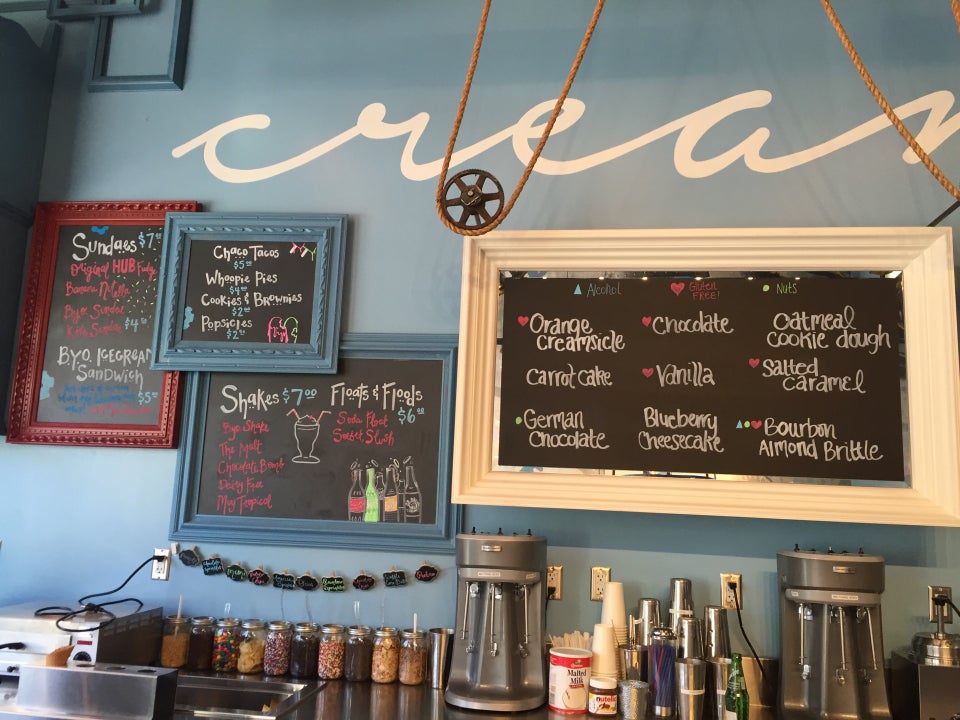 crea
Sundaes $7
Original HUB Fudge
Banana Nutella
Byo Sundae
Kids Sundae $4
BYO. ICECREAM
SANDWICH
$5
Choco Tacos
$5
Whoopie Pies
$4
Cookies & Brownies
$2
Popsicles
$2
Shakes $7.00
Byo Shake
The Malt
Chocolate Bomb
Dairy Free
Muy Tropical
Floats & Floods
$6
Soda Float
Sorbet Slush
Alcohol
Gluten
FREE!
Nuts
Orange
Creamsicle
Chocolate
Oatmeal
cookie dough
Carrot Cake
Vanilla
Salted
caramel
German
Chocolate
Blueberry
Cheesecake
Bourbon
Almond Brittle
Malted
Milk
nutella